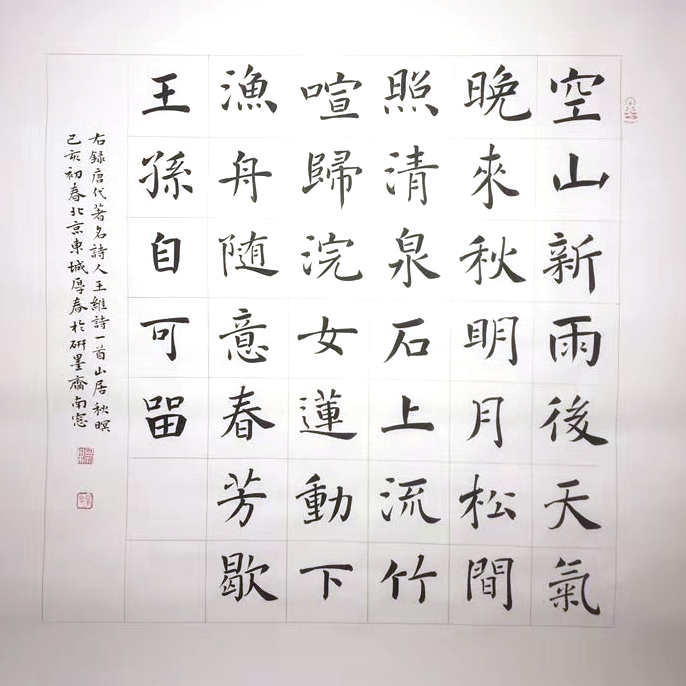 空山新雨後天氣
晚來秋明月松間
照清泉石上流竹
喧歸浣女蓮動下
漁舟随意春芳歇
王孫自可畱
右録唐代著名詩人王維詩一首山居秋暝
己亥初春北京東城厚春於研墨齋南窓